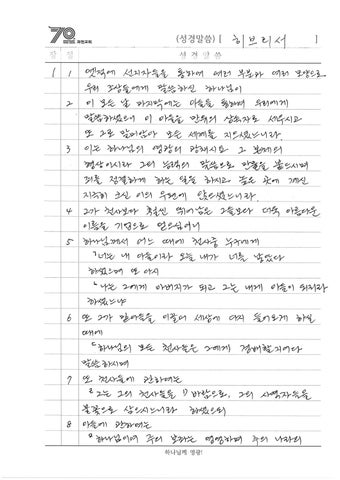 70 과천교회 (성경말씀) [ 히브리서 ]
장 절 성 경 말 씀
1 1 옛적에 선지자들을 통하여 여러 부분과 여러 모양으로
우리 조상들에게 말씀하신 하나님이
2 이 모든 날 마지막에는 아들을 통하여 우리에게
말씀하셨으니 이 아들을 만유의 상속자로 세우시고
또 그로 말미암아 모든 세계를 지으셨느니라
3 이는 하나님의 영광의 광채시요 그 본체의
형상이시라 그의 능력의 말씀으로 만물을 붙드시며
죄를 정결하게 하는 일을 하시고 높은 곳에 계신
지극히 크신 이의 우편에 앉으셨느니라
4 그가 천사보다 훨씬 뛰어남은 그들보다 더욱 아름다운
이름을 기업으로 얻으심이니
5 하나님께서 어느 때에 천사 중 누구에게
「너는 내 아들이라 오늘 내가 너를 낳았다
하셨으며 또 다시
「나는 그에게 아버지가 되고 그는 내게 아들이 되리라
하셨느냐
6 또 그가 맏아들을 이끌어 세상에 다시 들어오게 하실
때에
「하나님의 모든 천사들은 그에게 경배할지어다
말씀하시며
7 또 천사들에 관하여는
「그는 그의 천사들을 1) 바람으로, 그의 사역자들을
불꽃으로 삼으시느니라 하셨으되
8 아들에 관하여는
「하나님이여 주의 보좌는 영영하며 주의 나라의
하나님께 영광!